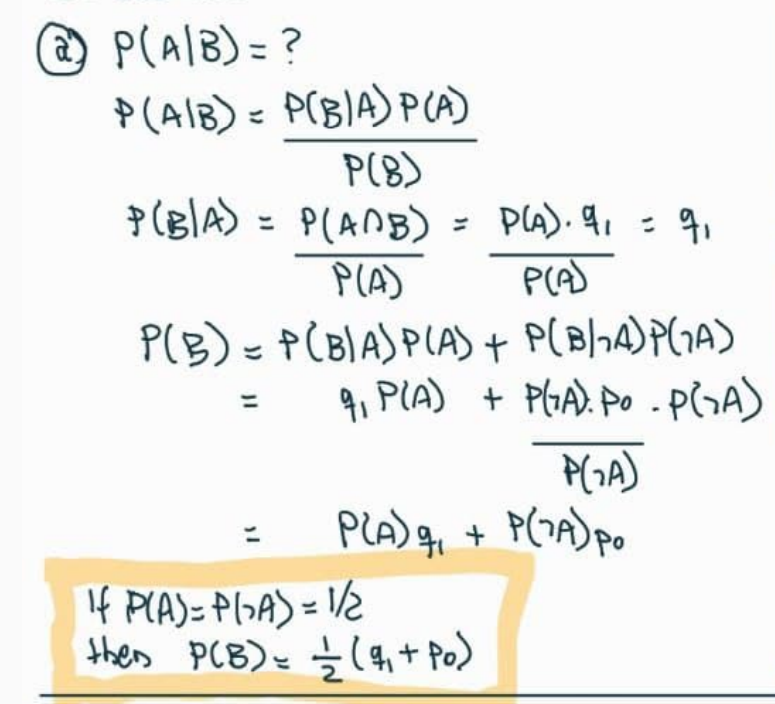 a) P(A|B) = ?
P(A|B) = P(B|A) P(A) / P(B)
P(B|A) = P(A∩B) / P(A) = P(A)·q₁ / P(A) = q₁
P(B) = P(B|A)P(A) + P(B|¬A)P(¬A)
= q₁ P(A) + P(¬A)·p₀ / P(¬A) · P(¬A)
= P(A)q₁ + P(¬A)p₀
If P(A)=P(¬A)=1/2
then P(B)= 1/2 (q₁+p₀)